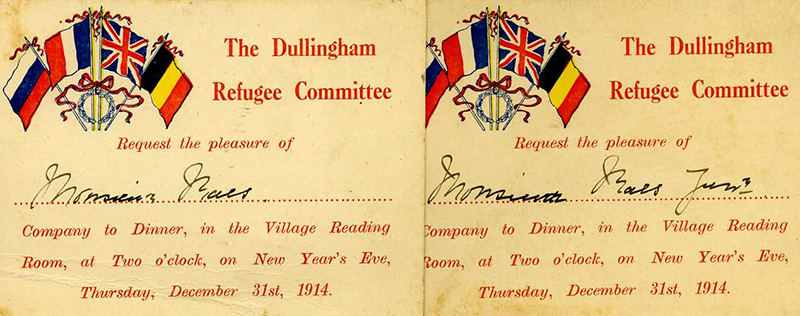 The Dullingham
Refugee Committee
Request the pleasure of
Monsieur Maes
Company to Dinner, in the Village Reading
Room, at Two o'clock, on New Year's Eve,
Thursday, December 31st, 1914.
The Dullingham
Refugee Committee
Request the pleasure of
Monsieur Maes Junr
Company to Dinner, in the Village Reading
Room, at Two o'clock, on New Year's Eve,
Thursday, December 31st, 1914.